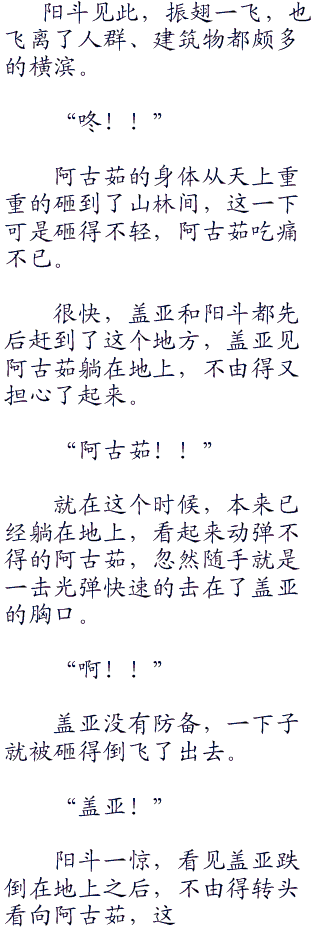 阳斗见此，振翅一飞，也
飞离了人群、建筑物都颇多
的横滨。
“咚！！”
阿古茹的身体从天上重
重的砸到了山林间，这一下
可是砸得不轻，阿古茹吃痛
不已。
很快，盖亚和阳斗都先
后赶到了这个地方，盖亚见
阿古茹躺在地上，不由得又
担心了起来。
“阿古茹！！”
就在这个时候，本来已
经躺在地上，看起来动弹不
得的阿古茹，忽然随手就是
一击光弹快速的击在了盖亚
的胸口。
“啊！！”
盖亚没有防备，一下子
就被砸得倒飞了出去。
“盖亚！”
阳斗一惊，看见盖亚跌
倒在地上之后，不由得转头
看向阿古茹，这